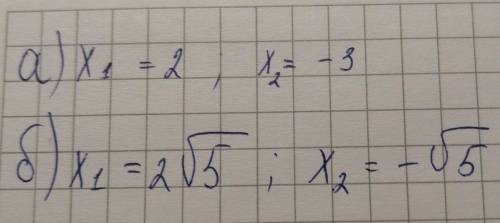 а) x₁ = 2 ; x₂ = -3
б) x₁ = 2√5 ; x₂ = -√5